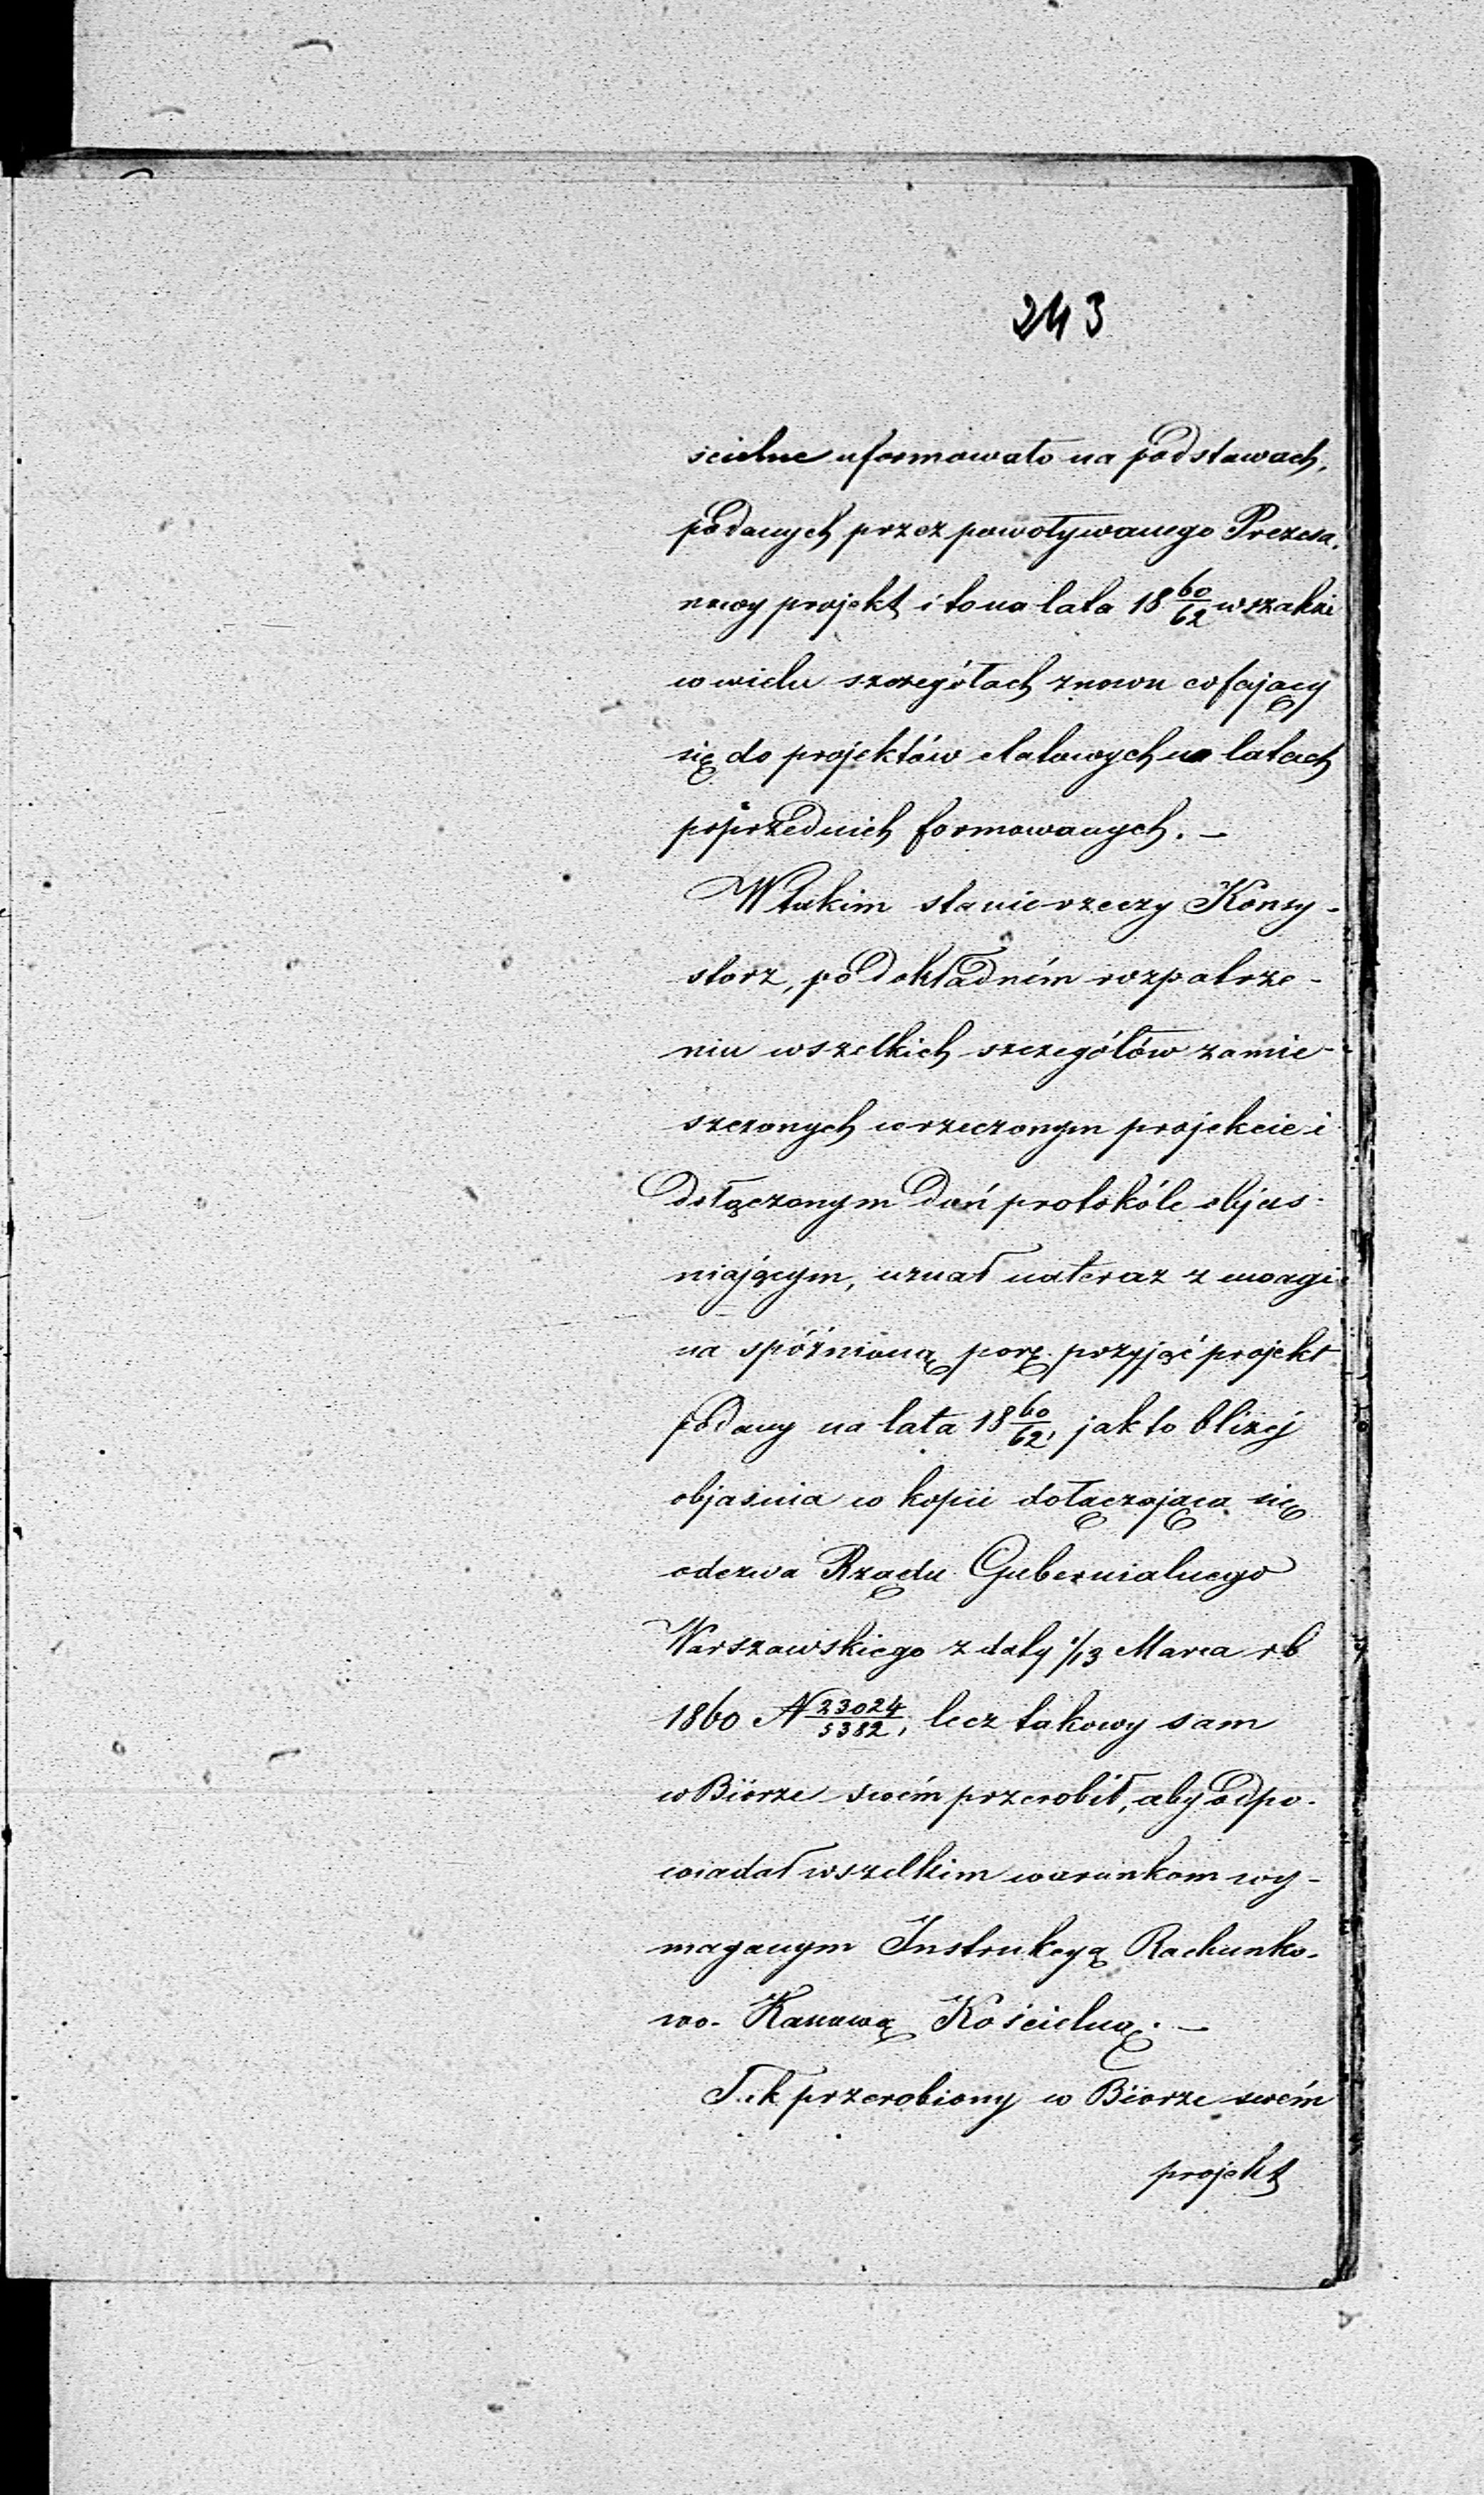 243
ścielne uformowało na podstawach,
podanych przez powoływanego Prezesa,
nowy projekt i to na lata 18 60/62 wszakże
w wielu szczegółach znowu cofający
się do projektów etatowych w latach
poprzednich formowanych. –
W takim stanie rzeczy Konsy-
storz, po dokładném rozpatrze-
niu wszelkich szczegółów zamie-
szczonych w rzeczonym projekcie i
dołączonym doń protokóle objaś-
niającym, uznał na teraz z uwagi
na spóźnioną porę przyjąć projekt
podany na lata 18 60/62, jak to bliżej
objaśnia w kopii dołączająca się
odezwa Rządu Gubernialnego
Warszawskiego z daty 1/13 Marca r b
1860 N 23024/5382, lecz takowy sam
w Biórze swém przerobił, aby odpo-
wiadał wszelkim warunkom wy-
maganym Instrukcyą Rachunko-
wo-Kassową Kościelną. –
Tak przerobiony w Biórze swém
projekt